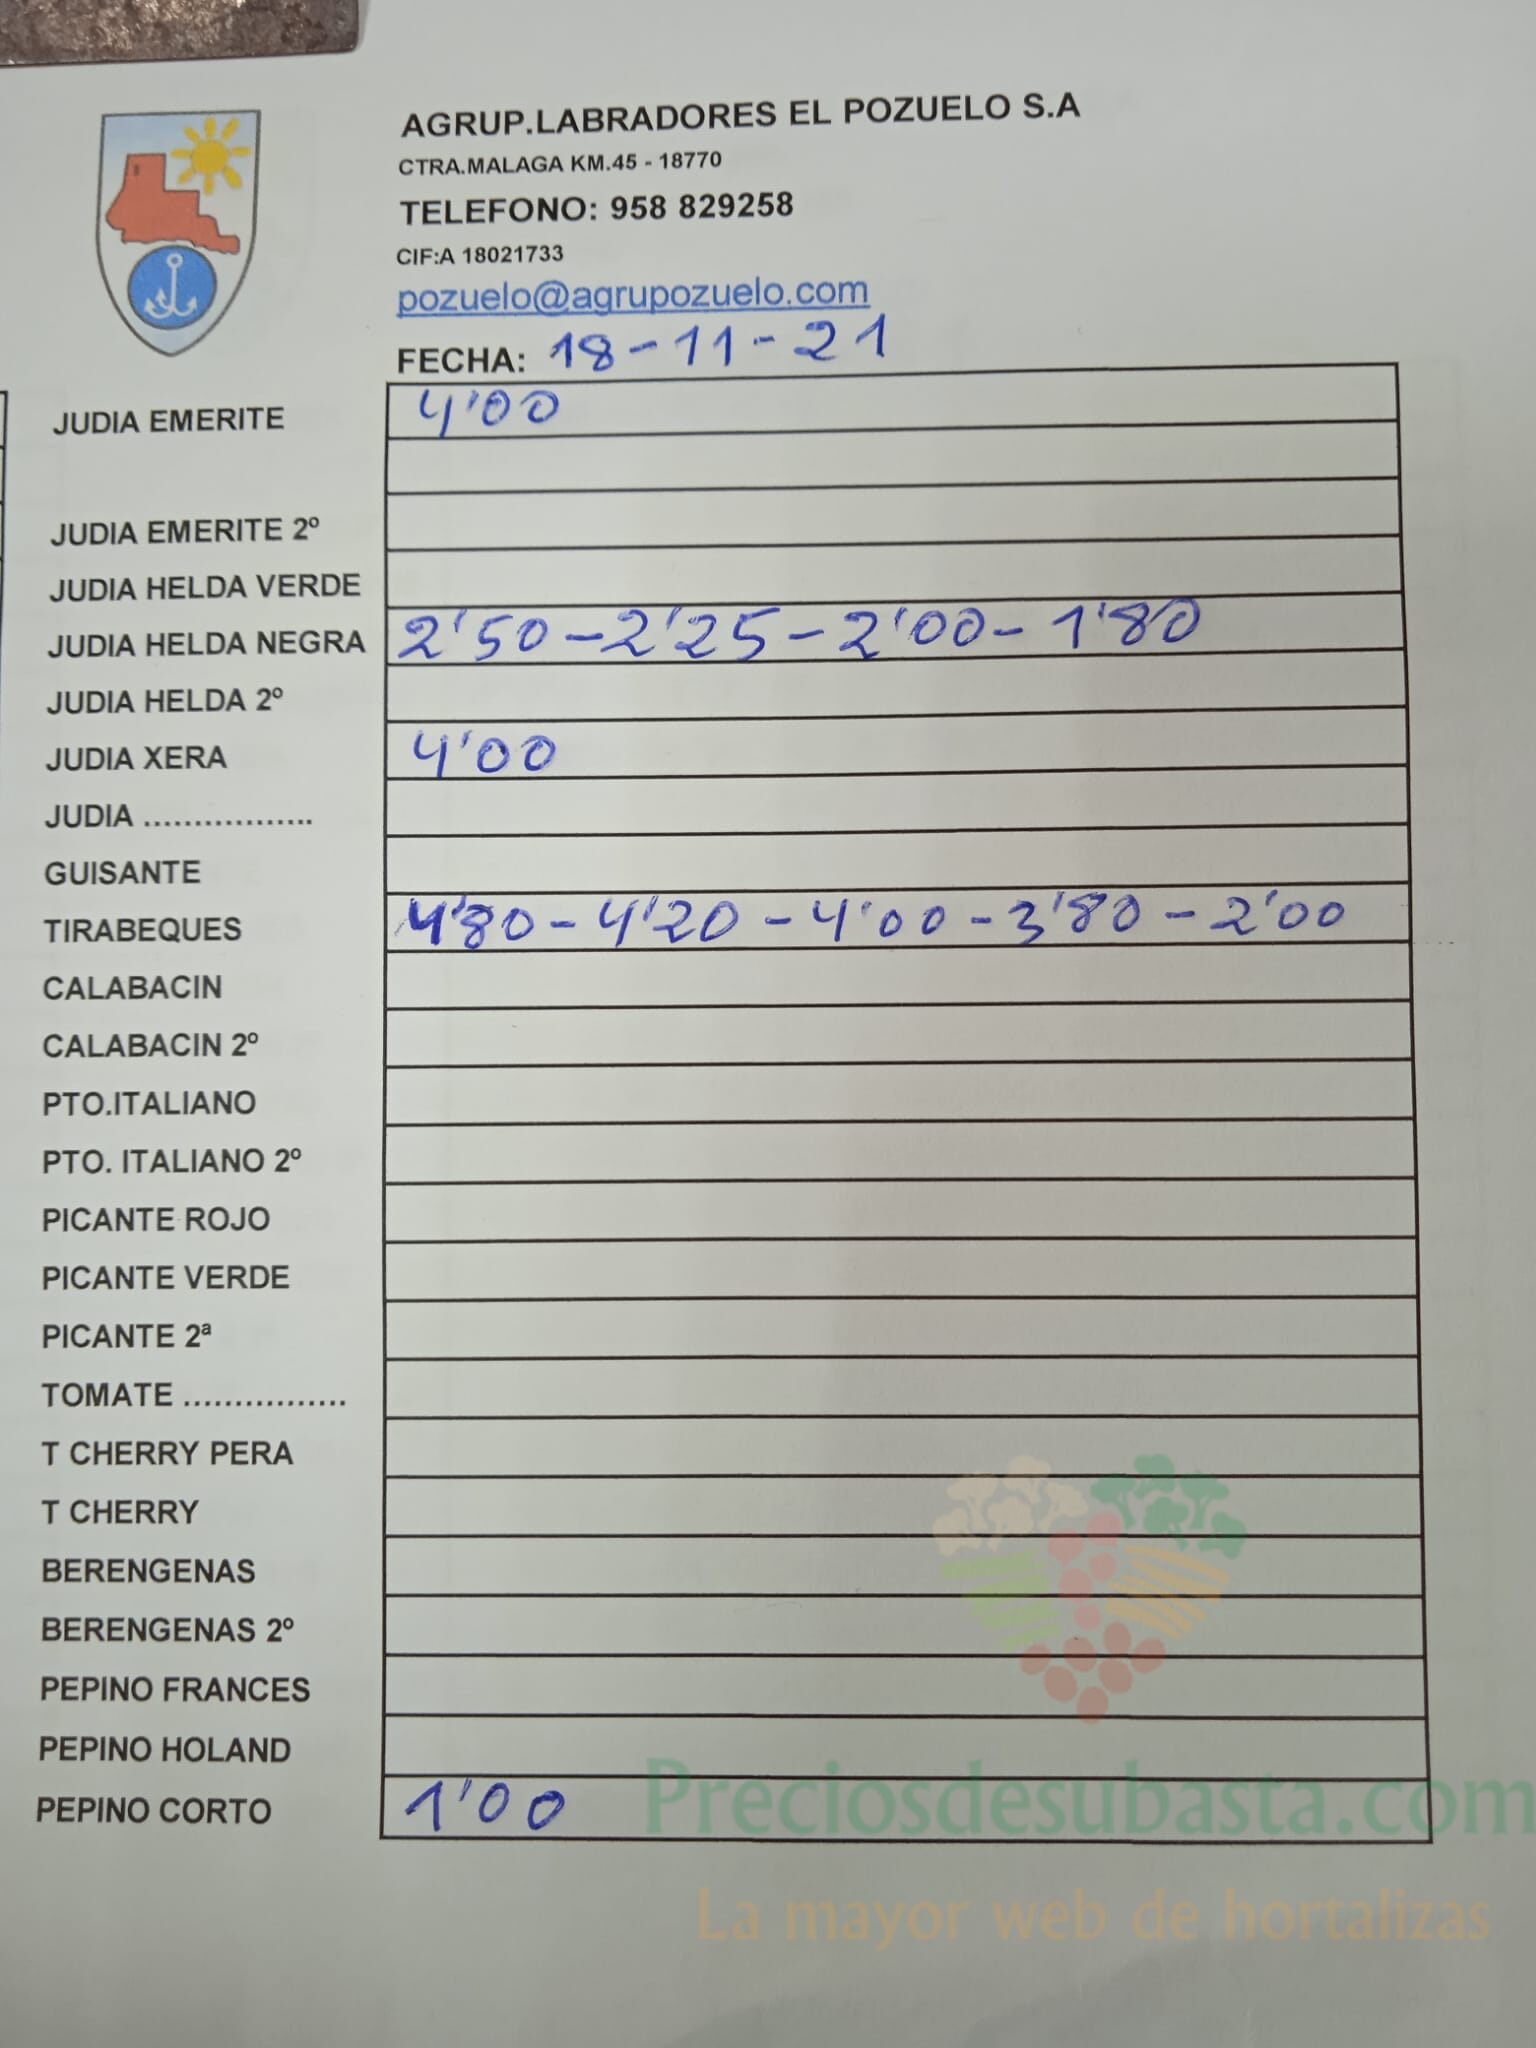 AGRUP.LABRADORES EL POZUELO S.A
CTRA.MALAGA KM.45 - 18770
TELEFONO: 958 829258
CIF:A 18021733
pozuelo@agrupozuelo.com
FECHA: 18-11-21
JUDIA EMERITE 4'00
JUDIA EMERITE 2º
JUDIA HELDA VERDE
JUDIA HELDA NEGRA 2'50-2'25-2'00-1'80
JUDIA HELDA 2º
JUDIA XERA 4'00
JUDIA .................
GUISANTE
TIRABEQUES 4'80-4'20-4'00-3'80-2'00
CALABACIN
CALABACIN 2º
PTO.ITALIANO
PTO. ITALIANO 2º
PICANTE ROJO
PICANTE VERDE
PICANTE 2ª
TOMATE ................
T CHERRY PERA
T CHERRY
BERENGENAS
BERENGENAS 2º
PEPINO FRANCES
PEPINO HOLAND
PEPINO CORTO 1'00
Preciosdesubasta.com
La mayor web de hortalizas